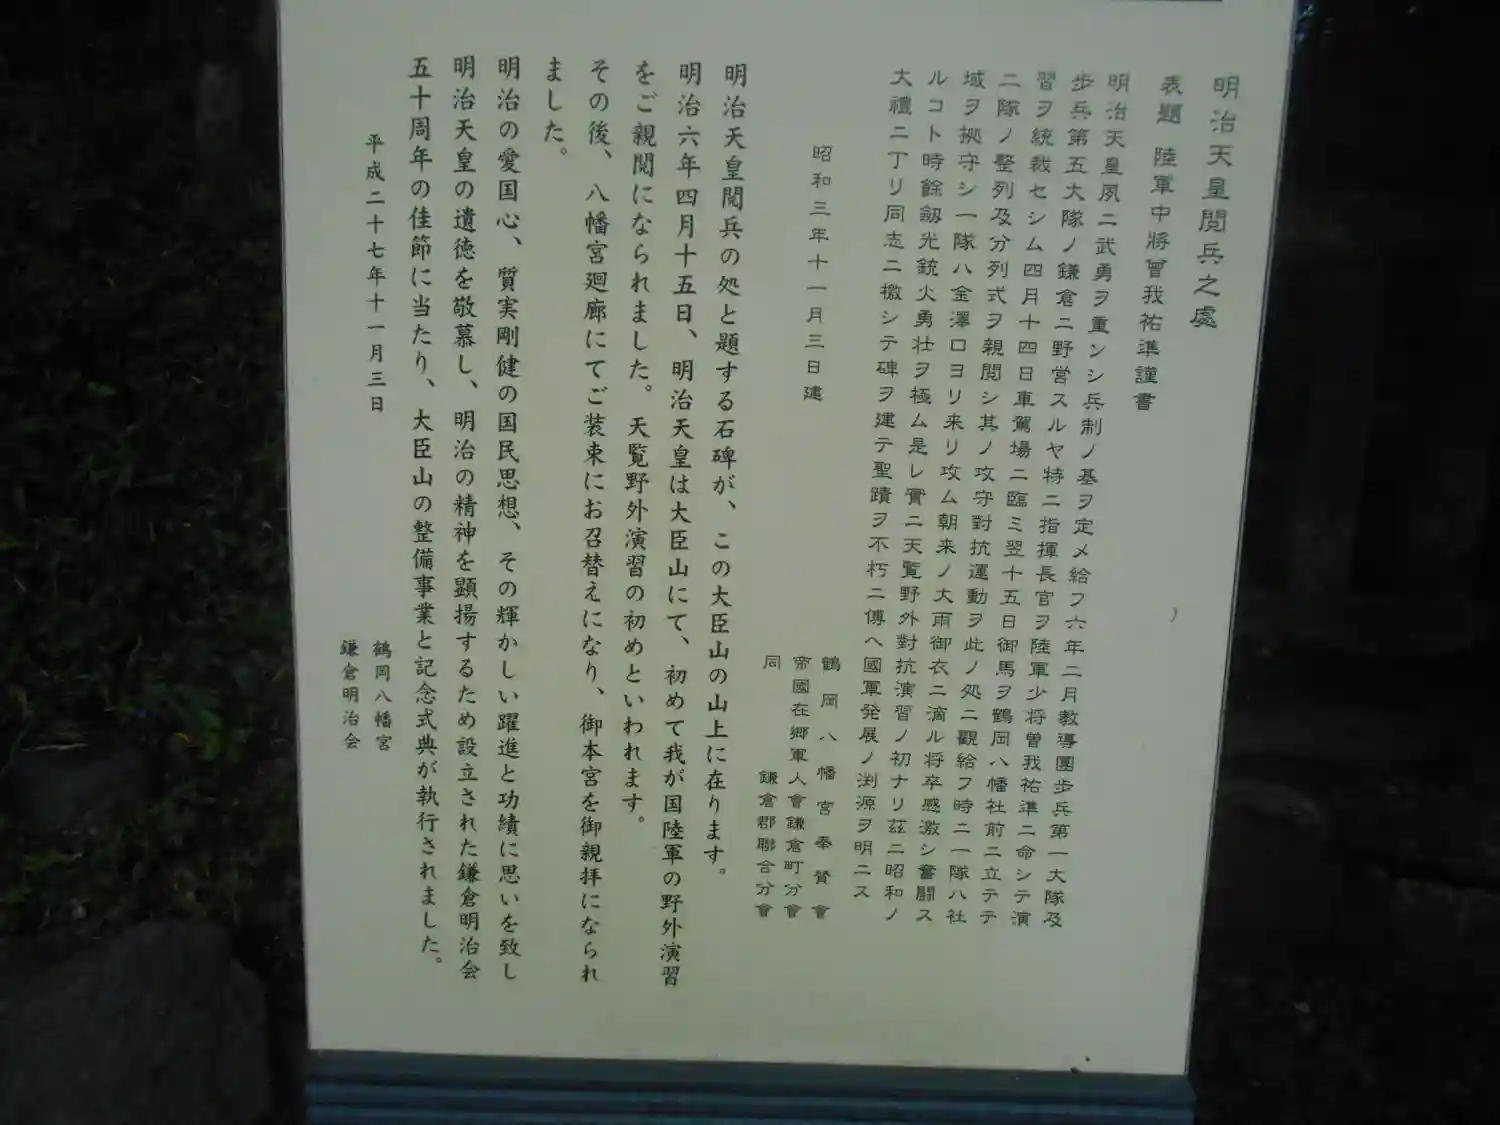 明治天皇閲兵之處
表題　陸軍中將曾我祐準謹書
明治天皇夙ニ武勇ヲ重ンシ兵制ノ基ヲ定メ給フ六年二月教導團歩兵第一大隊及
歩兵第五大隊ノ鎌倉ニ野営スルヤ特ニ指揮長官ヲ陸軍少将曽我祐準ニ命シテ演
習ヲ統裁セシム四月十四日車駕場ニ臨ミ翌十五日御馬ヲ鶴岡八幡社前ニ立テテ
二隊ノ整列及分列式ヲ親閲シ其ノ攻守對抗運動ヲ此ノ処ニ觀給フ時ニ一隊ハ社
域ヲ拠守シ一隊ハ金澤口ヨリ来リ攻ム朝来ノ大雨御衣ニ滴ル将卒感激シ奮闘ス
ルコト時餘劔光銃火勇壮ヲ極ム是レ實ニ天覧野外對抗演習ノ初ナリ茲ニ昭和ノ
大禮ニ丁リ同志ニ檄シテ碑ヲ建テ聖蹟ヲ不朽ニ傳ヘ國軍発展ノ渕源ヲ明ニス
昭和三年十一月三日建
鶴岡八幡宮奉賛會
帝國在郷軍人會鎌倉町分會
同　鎌倉郡聯合分會
明治天皇閲兵の処と題する石碑が、この大臣山の山上に在ります。
明治六年四月十五日、明治天皇は大臣山にて、初めて我が国陸軍の野外演習
をご親閲になられました。天覧野外演習の初めといわれます。
その後、八幡宮廻廊にてご装束にお召替えになり、御本宮を御親拝になられ
ました。
明治の愛国心、質実剛健の国民思想、その輝かしい躍進と功績に思いを致し
明治天皇の遺徳を敬慕し、明治の精神を顕揚するため設立された鎌倉明治会
五十周年の佳節に当たり、大臣山の整備事業と記念式典が執行されました。
平成二十七年十一月三日
鶴岡八幡宮
鎌倉明治会